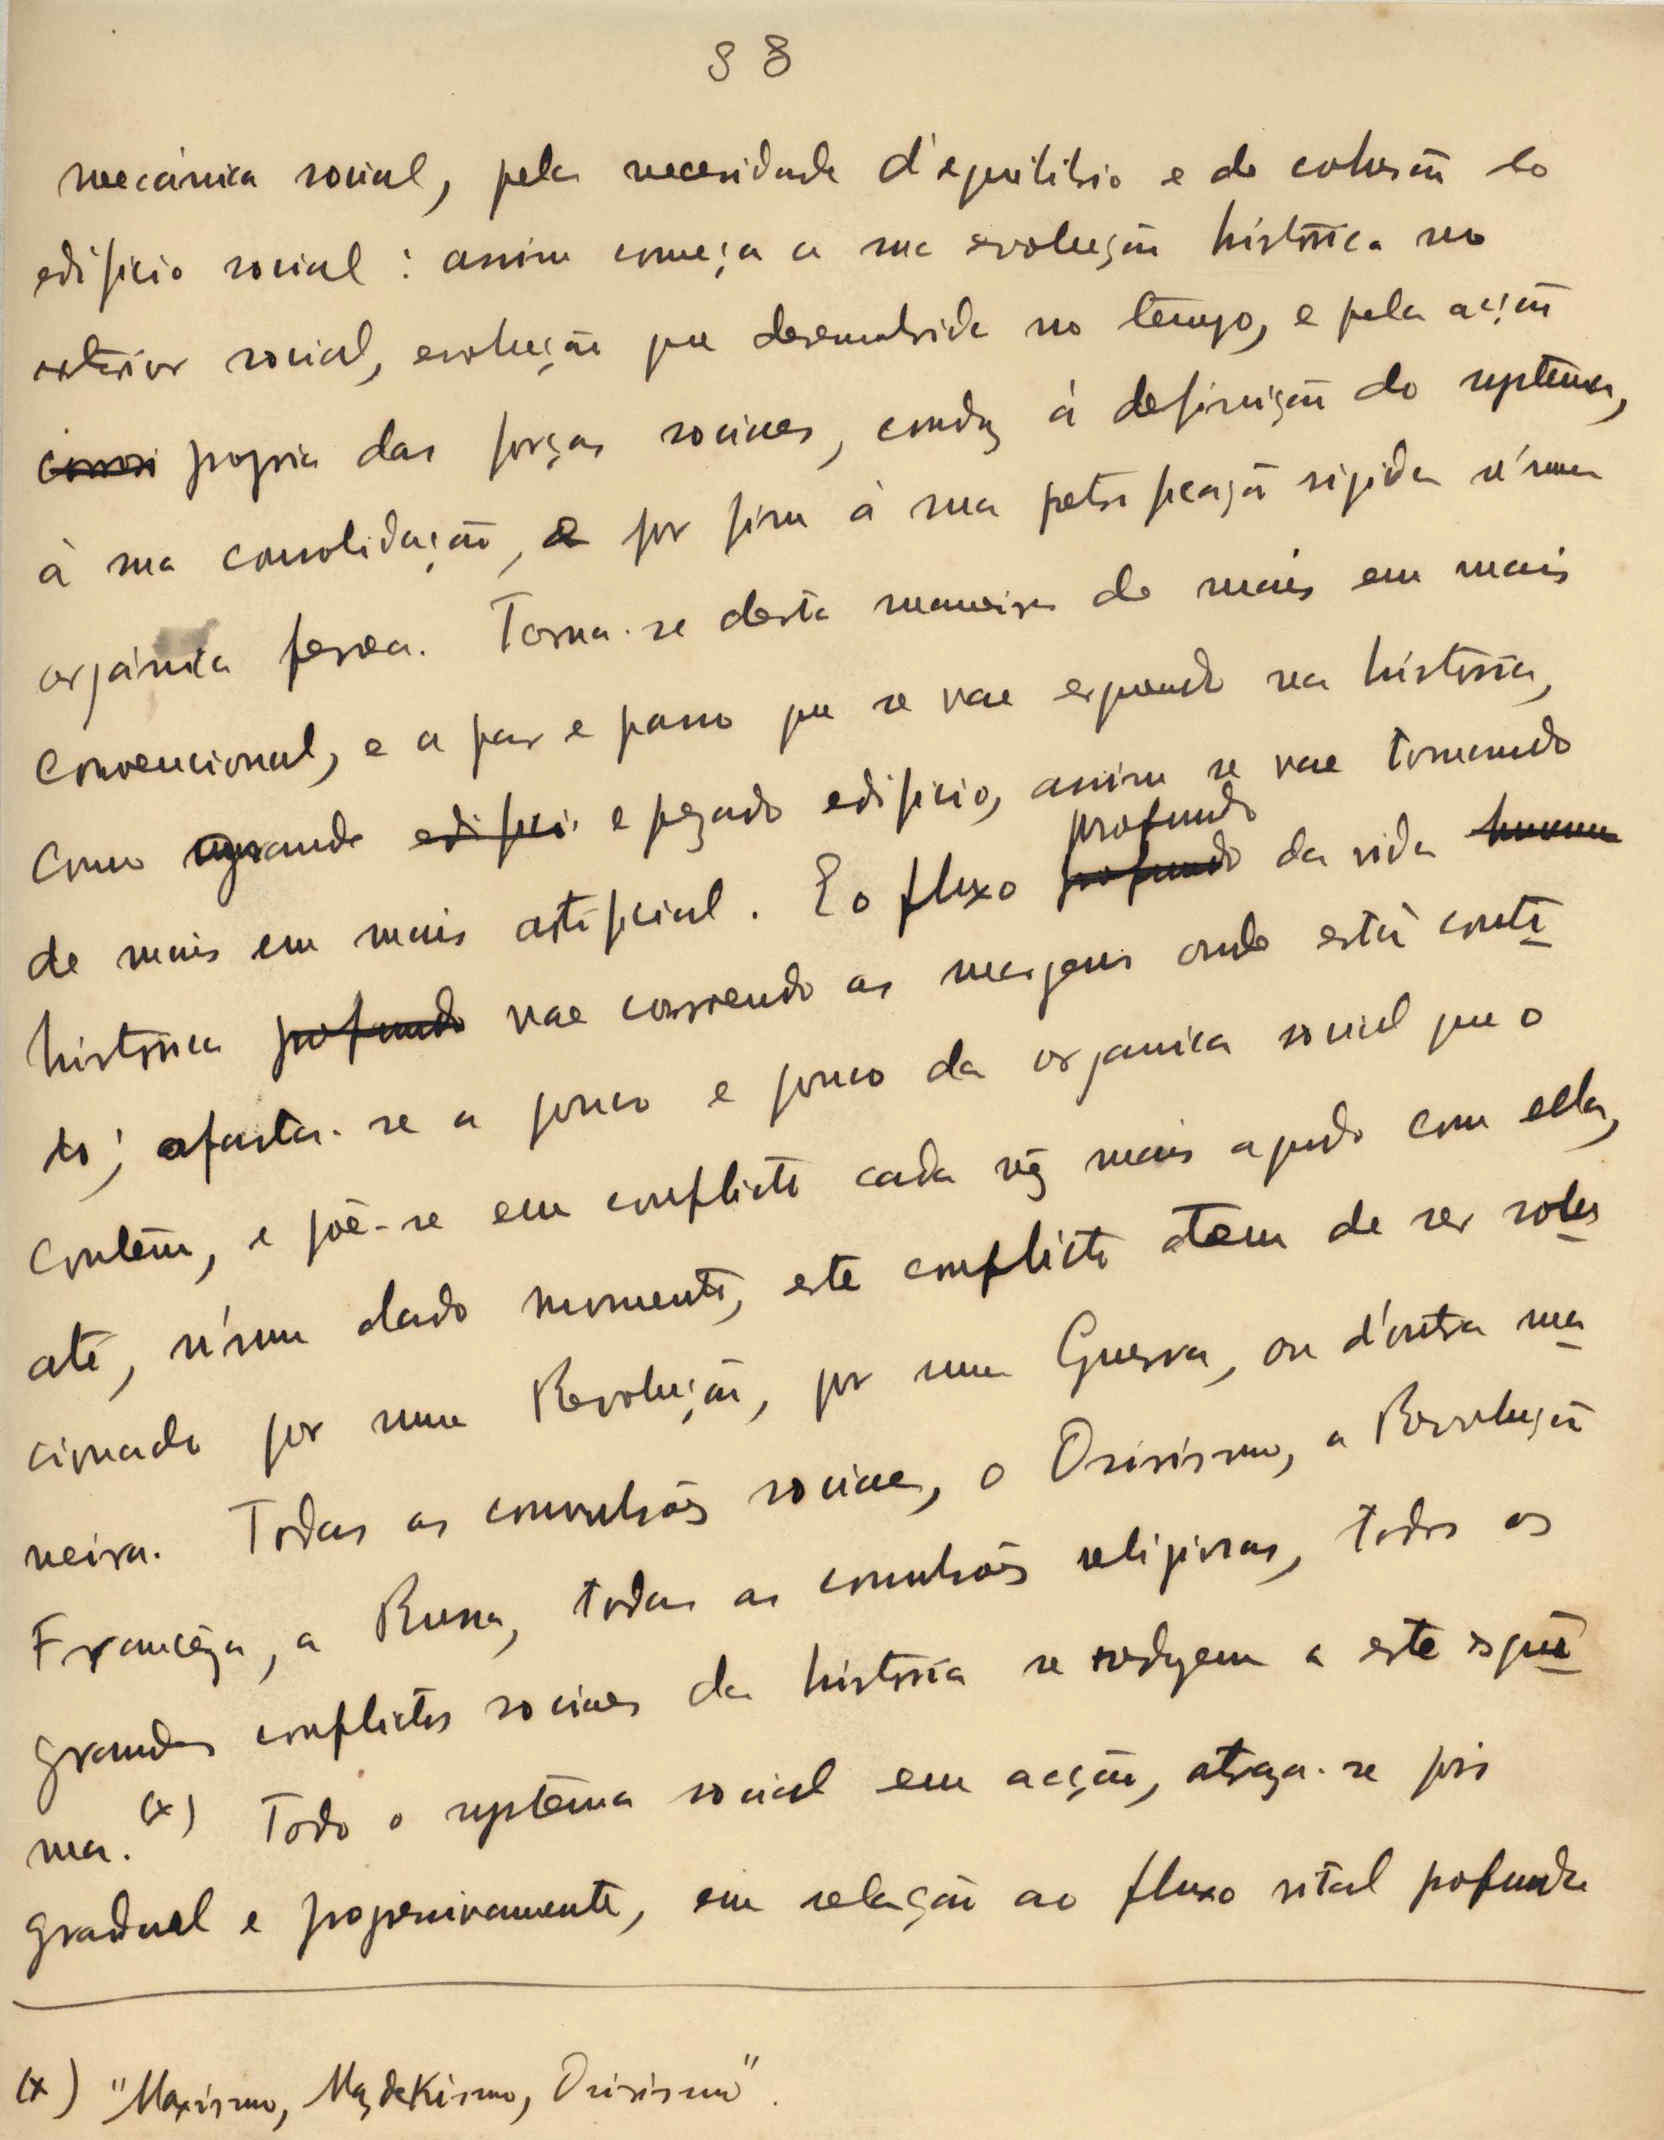 38
mecánica social, pela necesidade d'equilibrio e de cohesão do
edificio social : assim começa a sua evolução histórica no
exterior social, evolução que desenvolvida no tempo, e pela acção
propria das forças sociaes, conduz á definição do systema,
á sua consolidação, e por fim á sua petrificação rigida n'uma
orgánica ferrea. Torna-se desta maneira de mais em mais
convencional, e a par e passo que se vae erguendo na história,
como grande edifici e pezado edificio, assim se vae tornando
profundo
de mais em mais artificial. E o fluxo profundo da vida humana
histórica profundo vae correndo as margens onde está conti
do; afasta-se a pouco e pouco da organica social que o
contêm, e põe-se em conflicto cada vez mais agudo com ella,
até, n'um dado momento, este conflicto tem de ser solu
cionado por uma Revolução, por uma Guerra, ou d'outra ma
neira. Todas as convulsões sociaes, o Osirismo, a Revolução
Francêza, a Russa, todas as convulsões religiosas, todos os
grandes conflictos sociaes da história se reduzem a este esque
ma. (x) Todo o systema social em acção, atraza-se pois
gradual e progressivamente, em relação ao fluxo vital profundo
(x) "Marxismo, Mazdekismo, Osirismo".